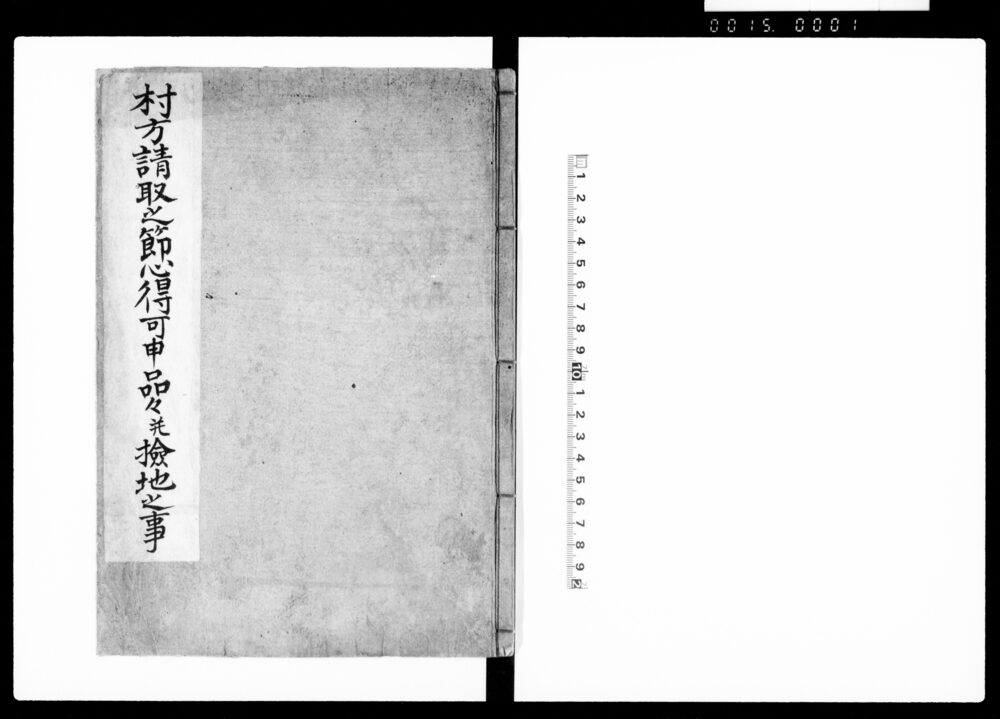 0015. 0001
村方請取之節心得可申品々并撿地之事
1 2 3 4 5 6 7 8 9 10 1 2 3 4 5 6 7 8 9 2